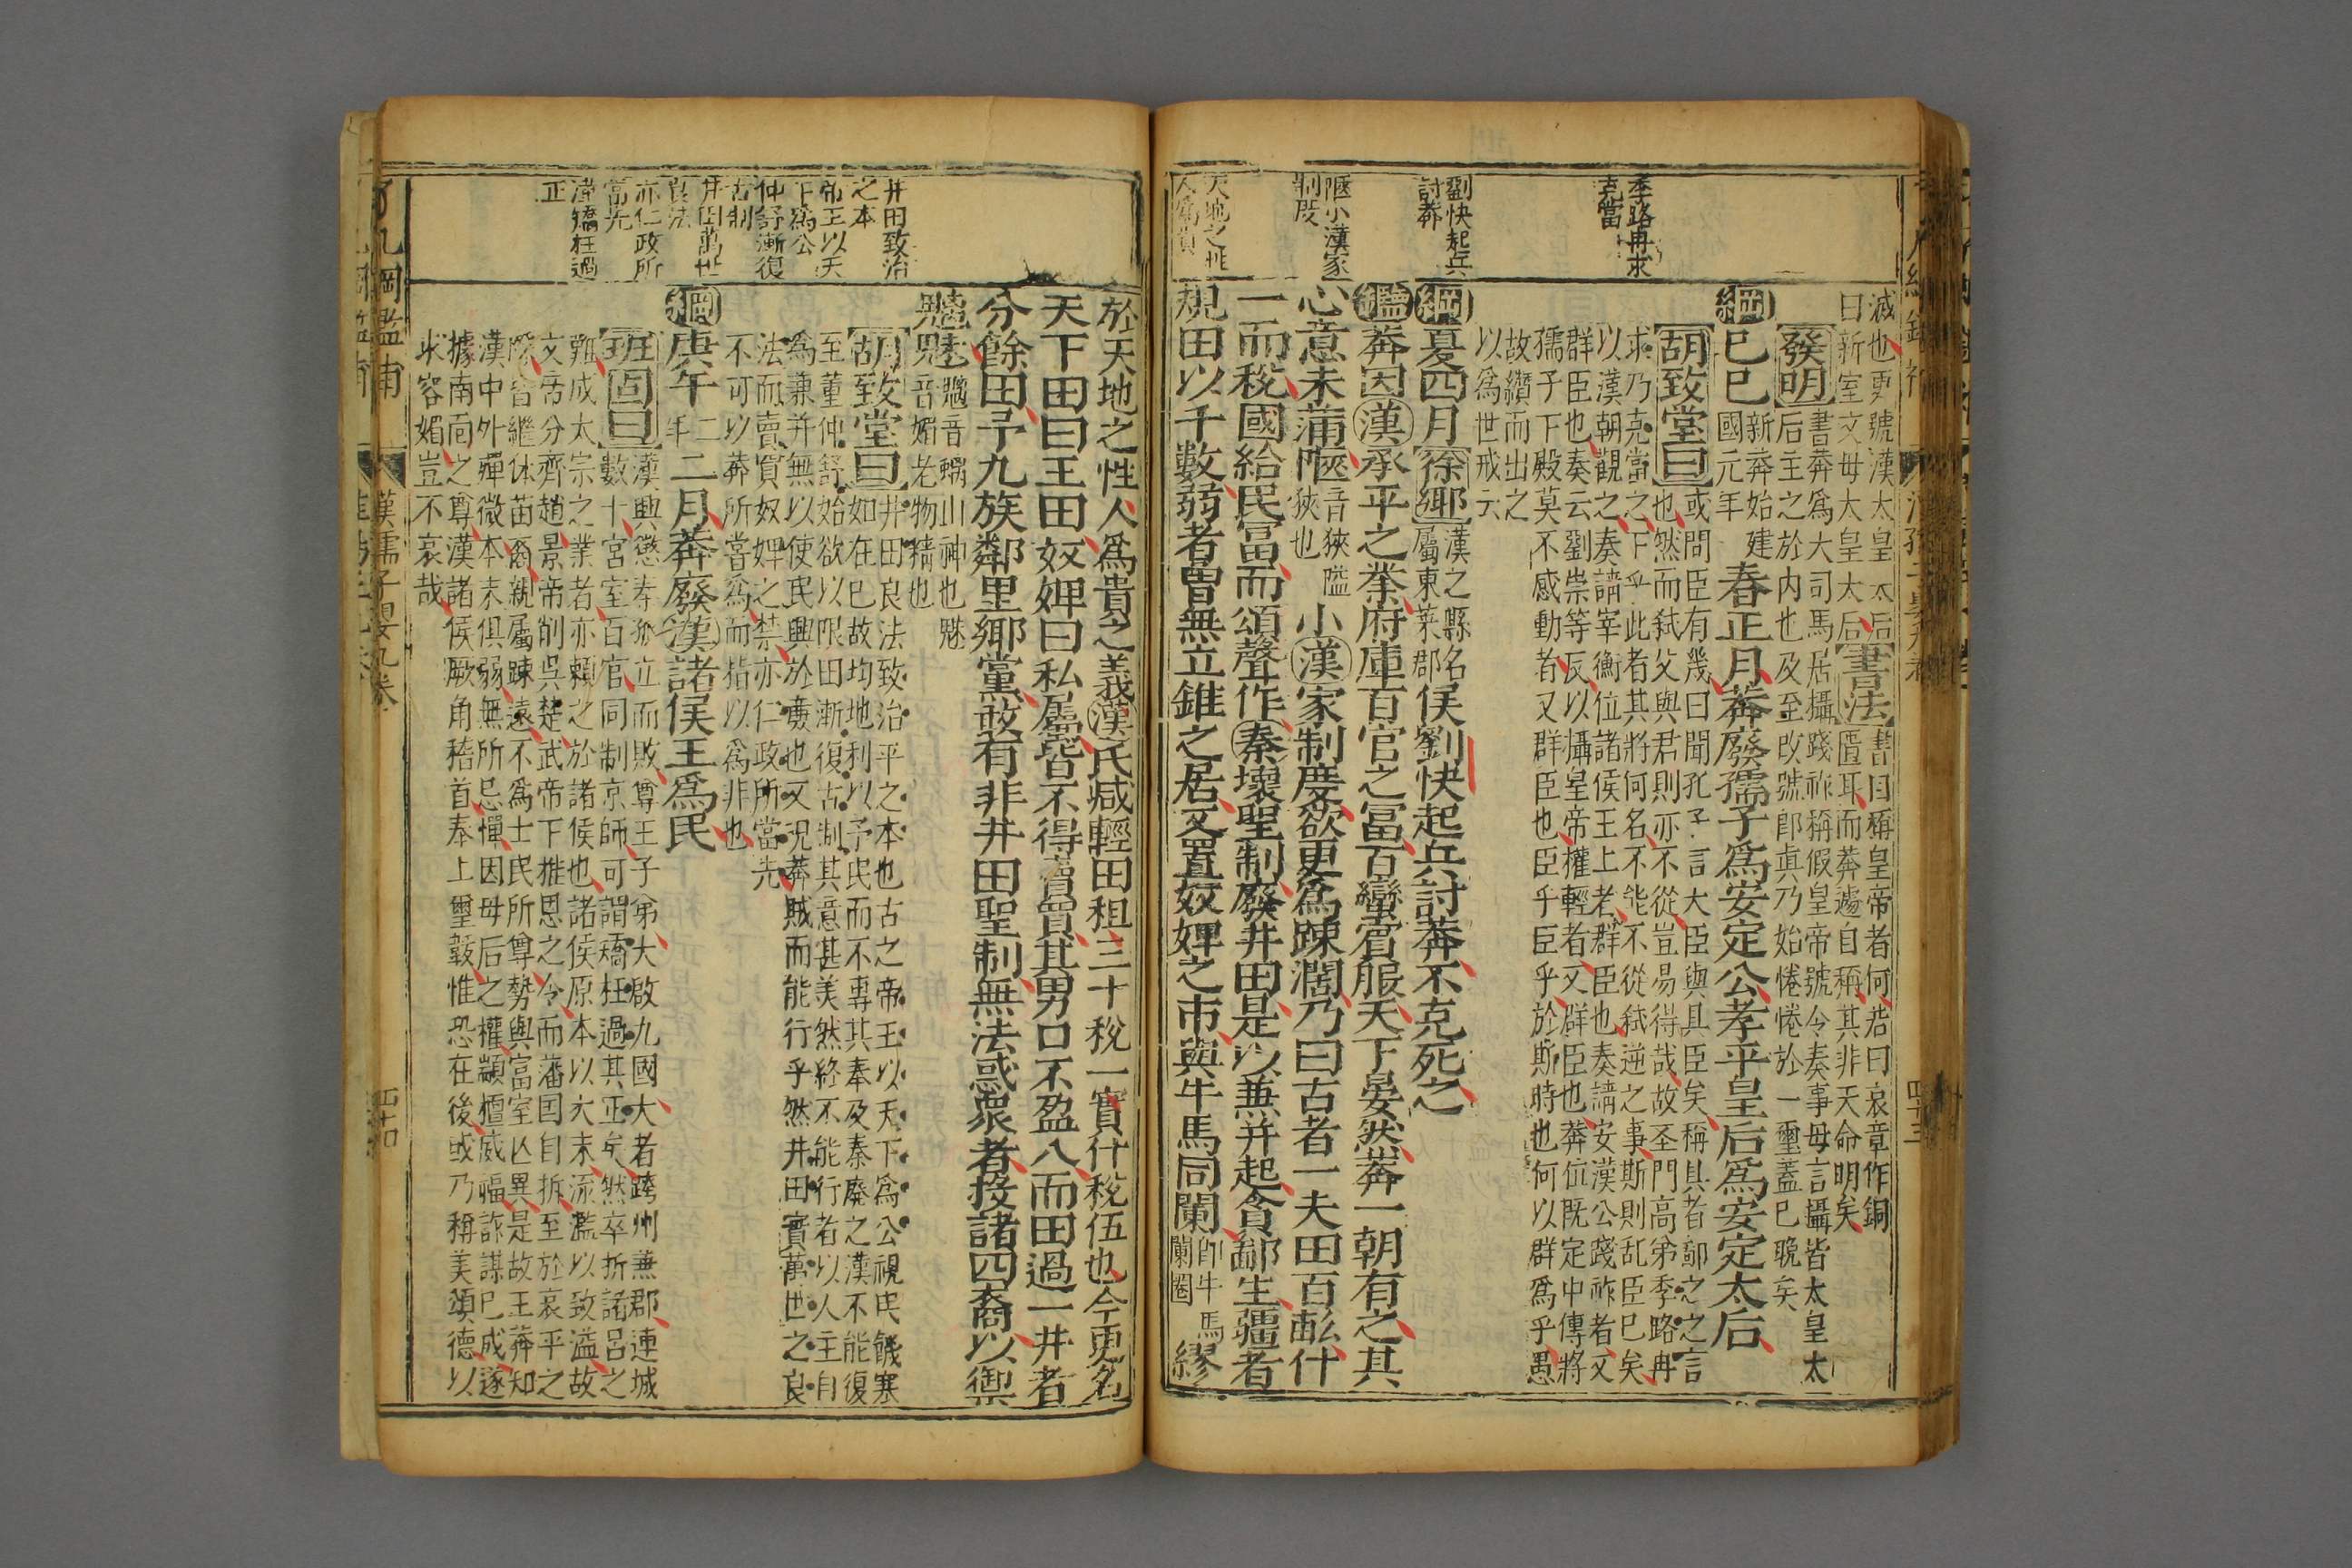 季路冉求
克當
劉快起兵
討莽
陿小漢家
制度
天地之性
人爲貴
滅也更號漢太皇太后
曰新室文母太皇太后
書法
書曰稱皇帝者何若曰哀章作銅
匱耳而莽遽自稱其非天命明矣
發明
書莽爲大司馬居攝踐祚稱假皇帝號令奏事毋言攝皆太皇太
后主之於内也及至改號卽真乃始惓惓於一璽蓋已晚矣
綱
己巳
新莽始建
國元年
春正月莽廢孺子爲安定公孝平皇后爲安定太后
胡致堂曰
或問臣有幾曰聞孔子言大臣與具臣矣稱具者鄙之之言
也然而弑父與君則亦不從豈易得哉故圣門高弟季路冉
求乃克當之下乎此者其將何名不能不從弑逆之事斯則乱臣已矣
以漢朝觀之奏請宰衡位諸侯王上者群臣也奏請安漢公踐祚者又
群臣也奏云劉崇等反以攝皇帝權輕者又群臣也莽位既定中傳將
孺子下殿莫不感動者又群臣也臣乎臣乎於斯時也何以群爲乎愚
故纘而出之
以爲世戒云
綱
夏四月徐鄉
漢之縣名
屬東萊郡
侯劉快起兵討莽不克死之
鑑
莽因漢承平之業府庫百官之冨百蠻賔服天下晏然莽一朝有之其
心意未蒲陿
音狹隘
狹也
小漢家制度欲更爲踈濶乃曰古者一夫田百畝什
一而稅國給民冨而頌聲作秦壞聖制廢井田是以兼并起貪鄙生彊者
規田以千數弱者曽無立錐之居又置奴婢之市與牛馬同闌
卽牛馬
闌圈
繆
井田致治
之本
帝王以天
下爲公
仲舒漸復
古制
井田萬世
良法
亦仁政所
當先
漢矯枉過
正
於天地之性人爲貴之義漢氏減輕田租三十稅一實什稅伍也今更名
天下田曰王田奴婢曰私屬皆不得賣買其男口不盈八而田過一井者
分餘田予九族鄰里鄉黨敢有非井田聖制無法惑衆者投諸四裔以禦
魑魅
魑音螭山神也魅
音媚老物精也
胡致堂曰
井田良法致治平之本也古之帝王以天下爲公視民饑寒
如在已故均地利以予民而不專其奉及秦廢之漢不能復
至董仲舒始欲以限田漸復古制其意甚美然終不能行者以人主自
爲兼并無以使民興於亷也又况莽賊而能行乎然井田實萬世之良
法而賣買奴婢之禁亦仁政所當先
不可以莽所嘗爲而指以爲非也
綱
庚午
二
年
二月莽廢漢諸侯王爲民
班固曰
漢興懲秦孤立而敗尊王子弟大啟九國大者跨州兼郡連城
數十宮室百官同制京師可謂矯枉過其正矣然卒折諸呂之
難成太宗之業者亦賴之於諸侯也諸侯原本以大末流濫以致溢故
文帝分齊趙景帝削吳楚武帝下推恩之令而藩国自拆至於哀平之
際皆繼体苗裔親屬踈遠不爲士民所尊勢與富室亾異是故王莽知
漢中外殫微本末俱弱無所忌憚因母后之權顓檀威福詐謀已成遂
據南面之尊漢諸侯厥角稽首奉上璽韍惟恐在後或乃稱美頌德以
求容媚豈不哀哉
漢孺子嬰九卷
四十四